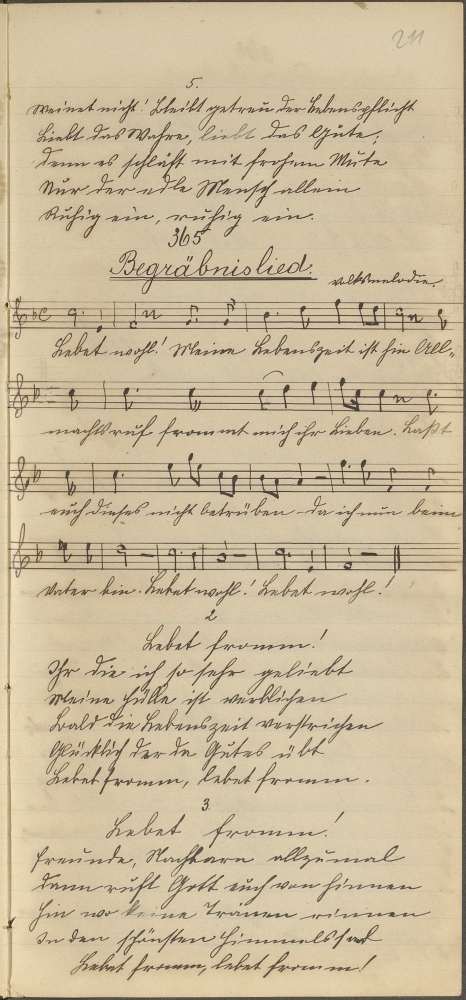 211
5.
Weinet nicht! Bleibt getreu der Lebenspflicht
Liebt das Wahre, liebt das Gute;
Denn es schläft mit frohem Mute
Nur der edle Mensch allein
Ruhig ein, ruhig ein.
365
Begräbnislied.
Volksmelodie.
Lebet wohl! Meine Lebenszeit ist hin All-
machtsruf trennt mich ihr Lieben. Laßt
euch dieses nicht betrüben da ich nun beim
Vater bin. Lebet wohl! Lebet wohl!
2
Lebet fromm!
Ihr die ich so sehr geliebt
Meine Hülle ist verblichen
Bald die Lebenszeit verstrichen
Glücklich der da Gutes übt
Lebet fromm, lebet fromm.
3
Lebet fromm!
Freunde, Nachbarn allzumal
Dann ruft Gott euch von hinnen
Hin wo keine Tränen rinnen
In den schönsten Himmelssaal
Lebet fromm, lebet fromm!